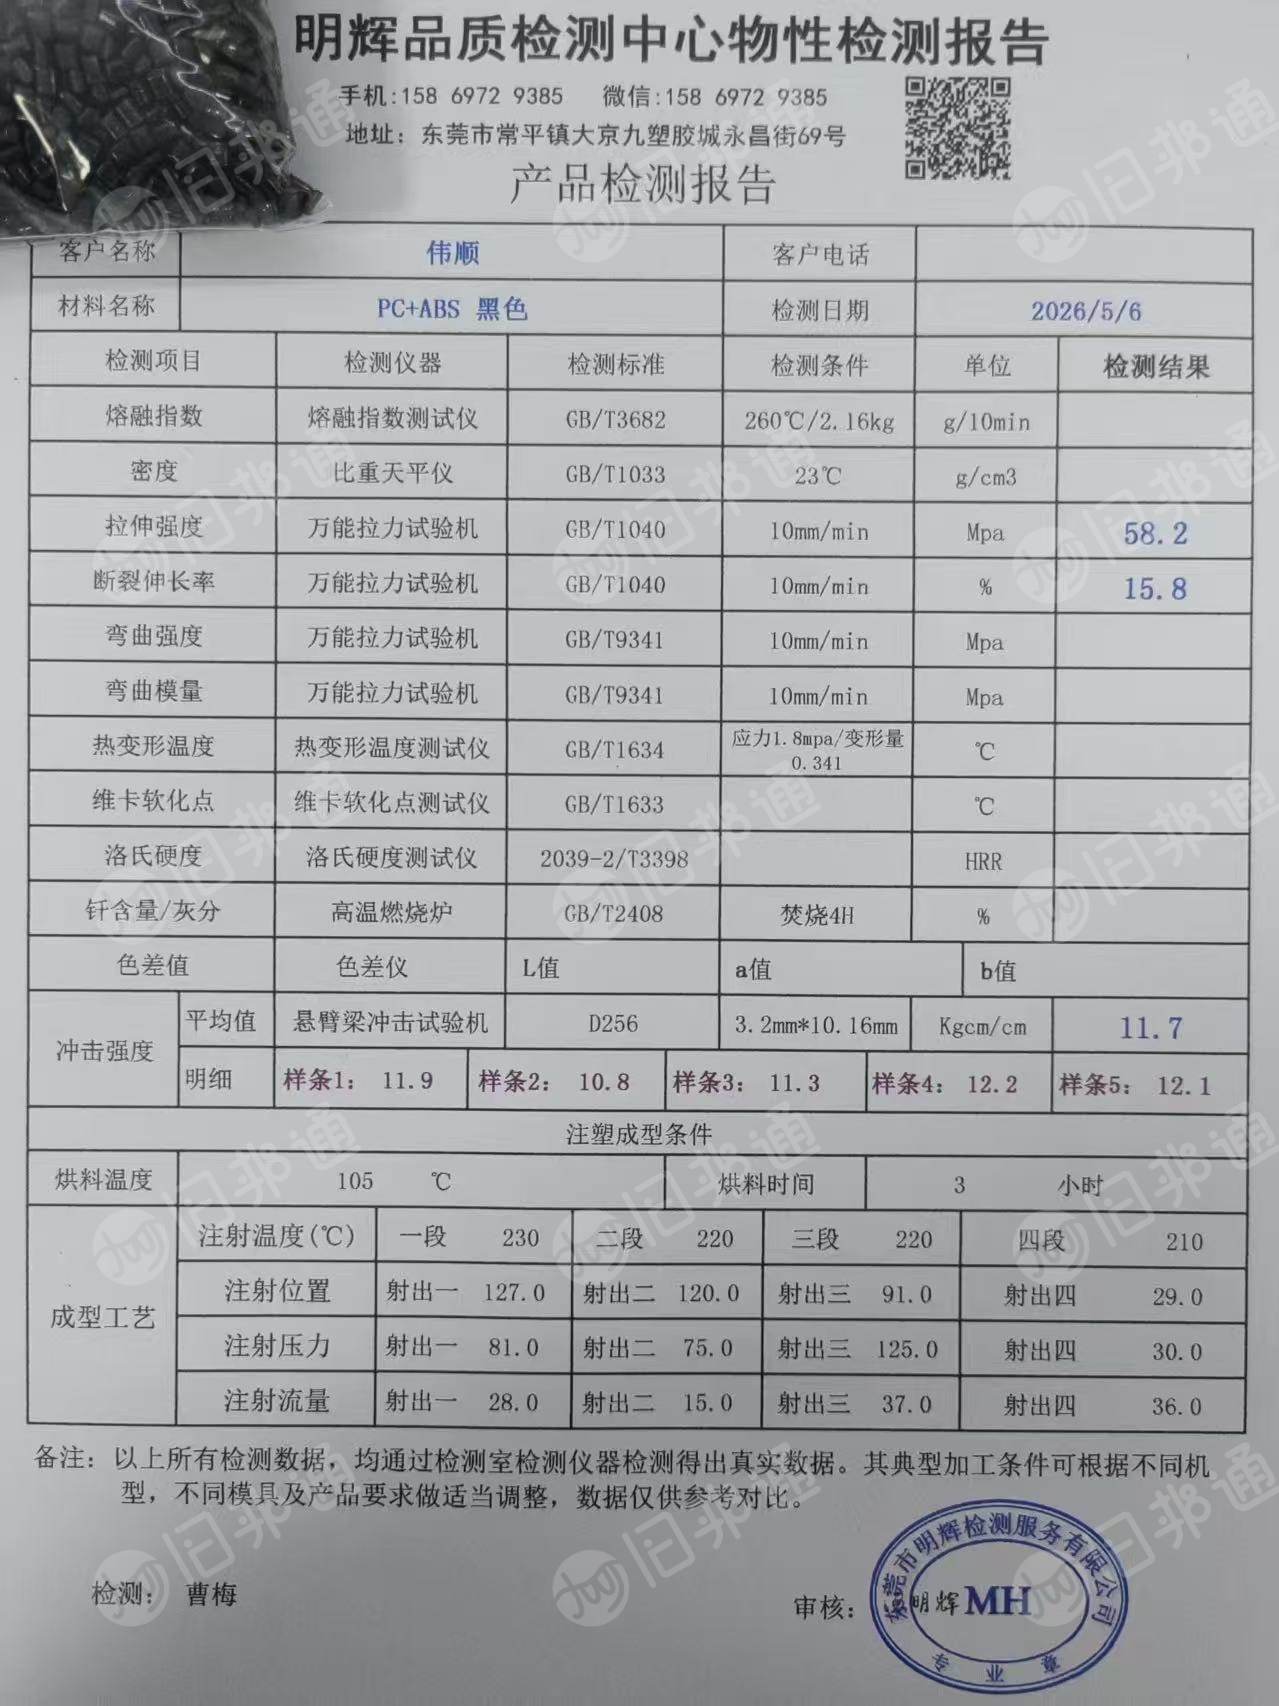 明辉品质检测中心物性检测报告
手机:158 6972 9385 微信:158 6972 9385
地址: 东莞市常平镇大京九塑胶城永昌街69号
产品检测报告
客户名称 伟顺 客户电话
材料名称 PC+ABS 黑色 检测日期 2026/5/6
检测项目 检测仪器 检测标准 检测条件 单位 检测结果
熔融指数 熔融指数测试仪 GB/T3682 260℃/2.16kg g/10min
密度 比重天平仪 GB/T1033 23℃ g/cm3
拉伸强度 万能拉力试验机 GB/T1040 10mm/min Mpa 58.2
断裂伸长率 万能拉力试验机 GB/T1040 10mm/min % 15.8
弯曲强度 万能拉力试验机 GB/T9341 10mm/min Mpa
弯曲模量 万能拉力试验机 GB/T9341 10mm/min Mpa
热变形温度 热变形温度测试仪 GB/T1634 应力1.8mpa/变形量0.341 ℃
维卡软化点 维卡软化点测试仪 GB/T1633 ℃
洛氏硬度 洛氏硬度测试仪 2039-2/T3398 HRR
钎含量/灰分 高温燃烧炉 GB/T2408 焚烧4H %
色差值 色差仪 L值 a值 b值
冲击强度 平均值 悬臂梁冲击试验机 D256 3.2mm*10.16mm Kgcm/cm 11.7
明细 样条1: 11.9 样条2: 10.8 样条3: 11.3 样条4: 12.2 样条5: 12.1
注塑成型条件
烘料温度 105 ℃ 烘料时间 3 小时
成型工艺 注射温度(℃) 一段 230 二段 220 三段 220 四段 210
注射位置 射出一 127.0 射出二 120.0 射出三 91.0 射出四 29.0
注射压力 射出一 81.0 射出二 75.0 射出三 125.0 射出四 30.0
注射流量 射出一 28.0 射出二 15.0 射出三 37.0 射出四 36.0
备注: 以上所有检测数据, 均通过检测室检测仪器检测得出真实数据。其典型加工条件可根据不同机
型, 不同模具及产品要求做适当调整, 数据仅供参考对比。
检测: 曹梅
审核: 明辉
东莞市明辉检测服务有限公司
MH
专业章
旧邦通